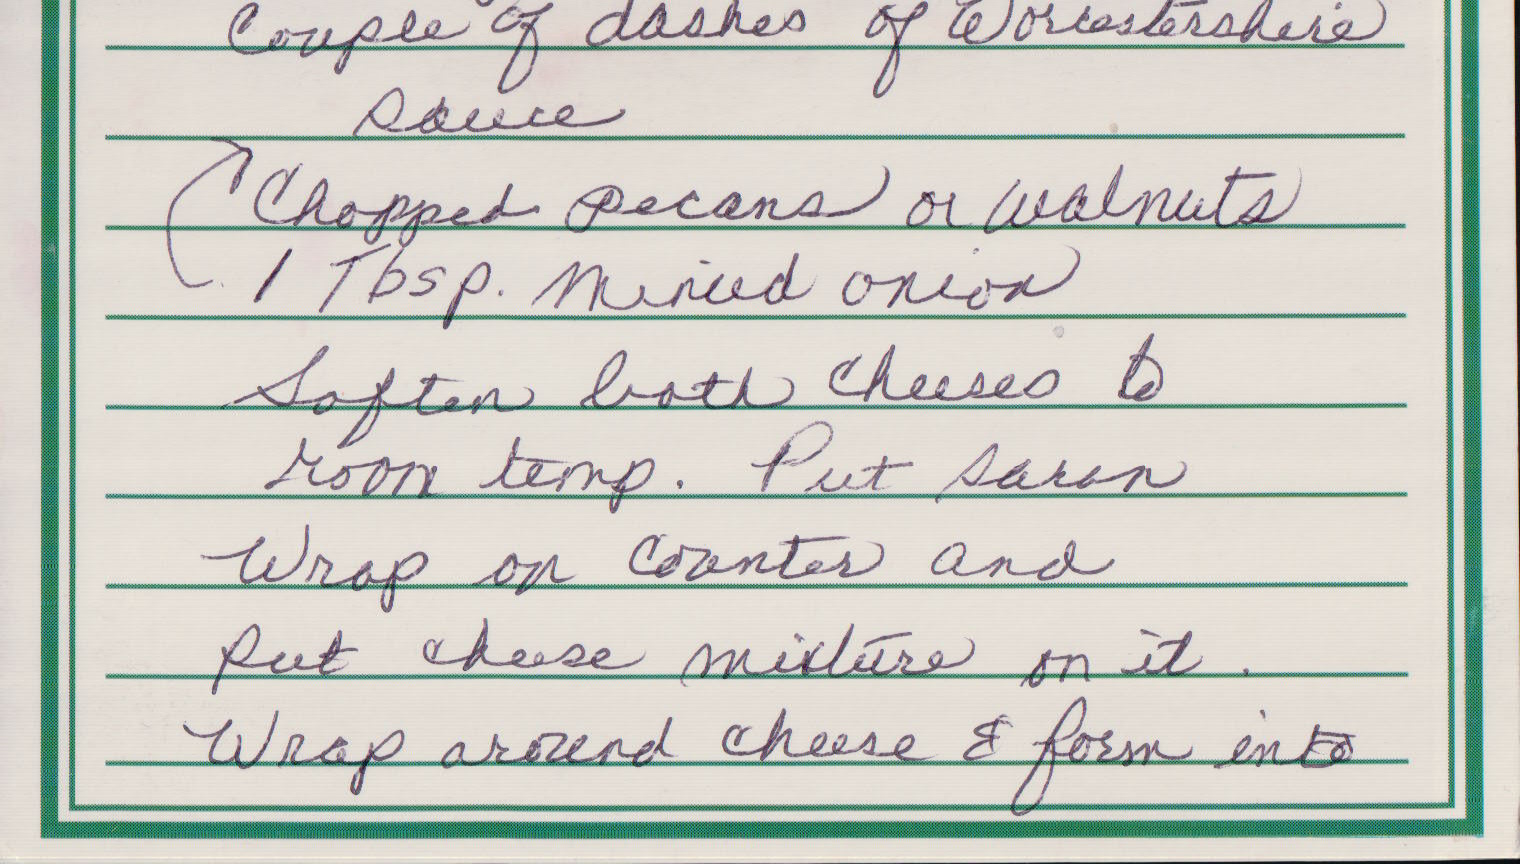 Couple of dashes of Worcestershire
sauce
Chopped pecans or walnuts
1 Tbsp. Minced onion
Soften both cheeses to
room temp. Put saran
Wrap on counter and
put cheese mixture on it.
Wrap around cheese & form into